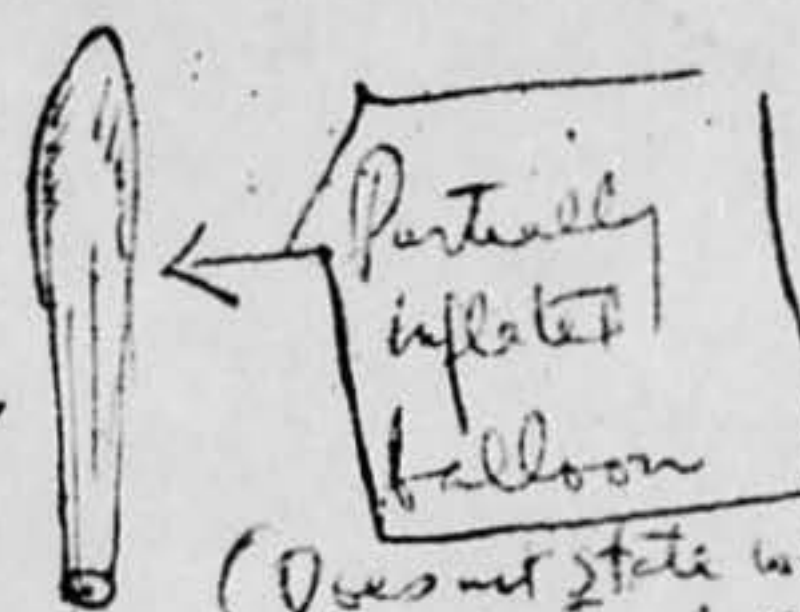 Partially
inflated
balloon
(Does not state